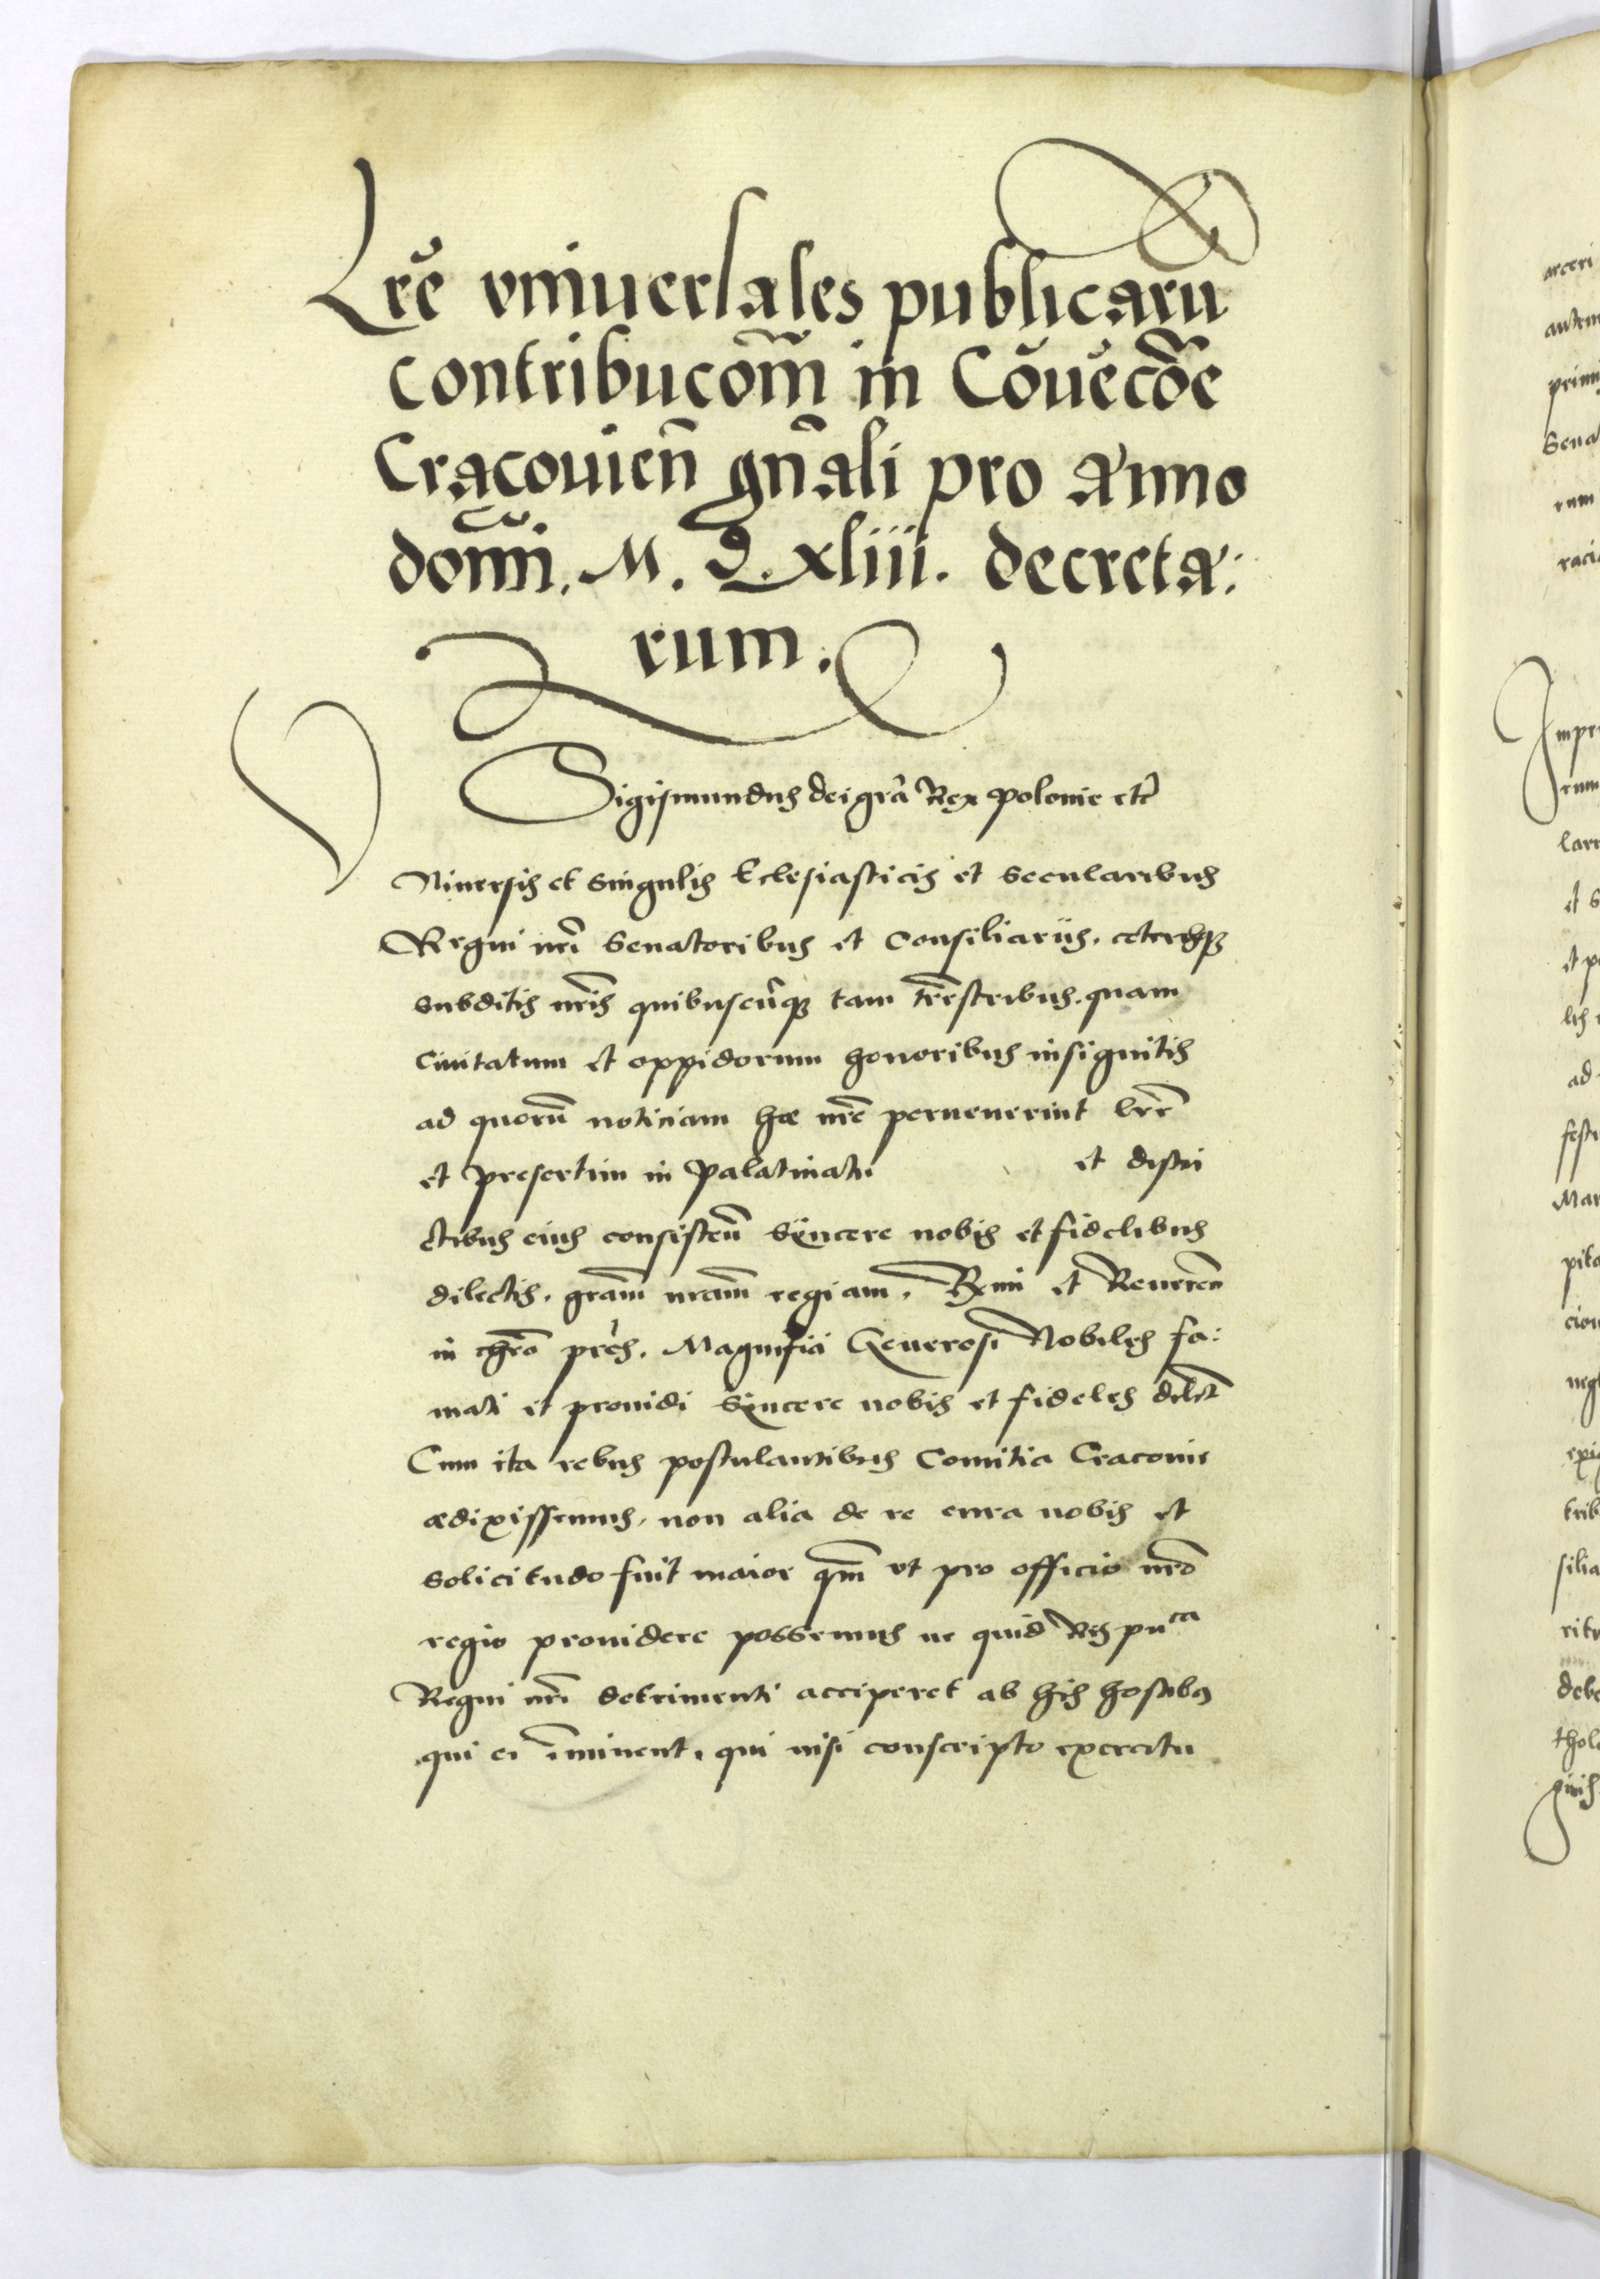 Lrẽ vniuersales publicarũ
contribucom̃ in Cõuẽcõe
Cracouien̄ gn̄ali pro anno
domĩ. M. Q. xliii. decreta:
rum.
Sigismundus dei grã Rex Polonie etc̃
Vniuersis et singulis Eclesiasticis et secularibus
Regni nrĩ Senatoribus et Consiliariis. ceterisqꝫ
subditis nrĩs quibuscũqꝫ tam trẽstribus. quam
Ciuitatum et oppidorum honoribus insignitis
ad quorũ noticiam hæ nrẽ peruenerint lrẽ
et presertim in Palatinatu et distri
ctibus eius consisten̄ Syncere nobis et fidelibus
dilectis. grãm nrãm regiam. Rx̃mi et Reueren̄
in chrõ prẽs. Magnifici Generosi Nobiles fa:
mati et prouidi Syncere nobis et fideles dilect̃
Cum ita rebus postulantibus Comitia Cracouie
ædixissemus. non alia de re cura nobis et
solicitudo fuit maior qm̃ ut pro officio nrõ
regio prouidere possemus ne quid Res pu^ca
Regni nrĩ detrimenti acciperet ab his hostibꝫ
qui ei ĩminent. qui nisi conscripto exercitu